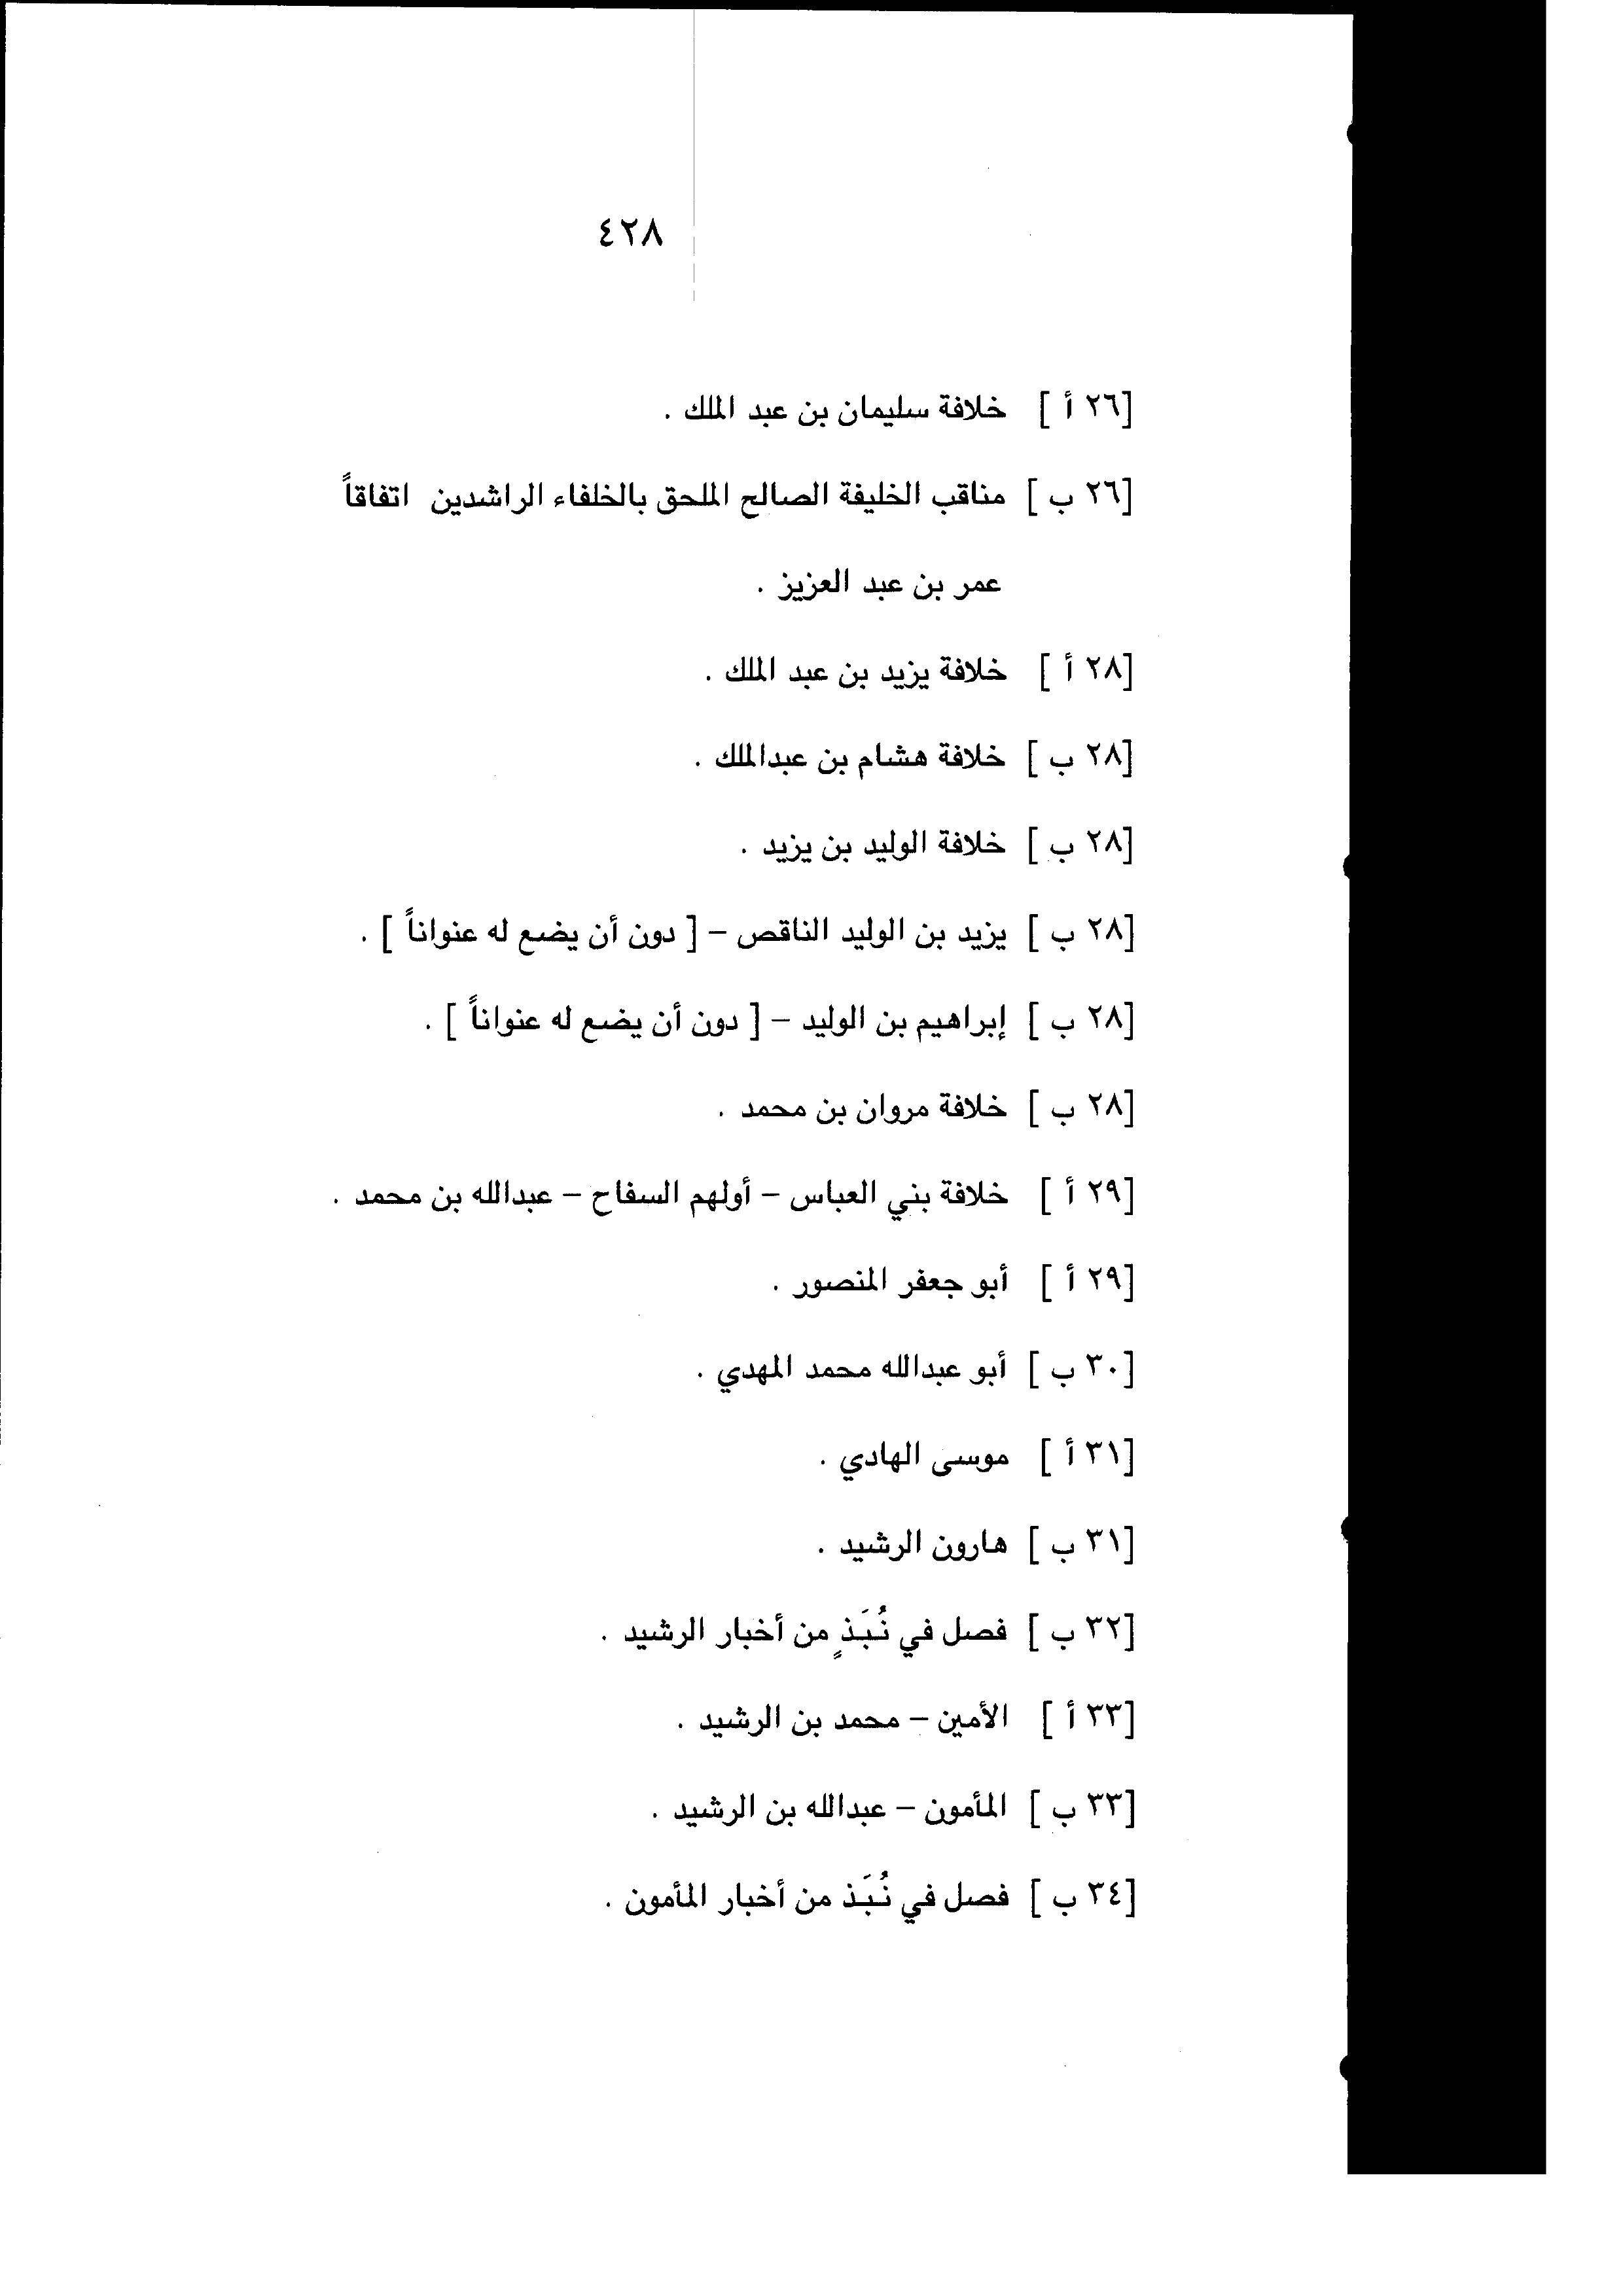 ٤٢٨
[٢٦ أ ] خلافة سليمان بن عبد الملك .
[٢٦ ب ] مناقب الخليفة الصالح الملحق بالخلفاء الراشدين اتفاقاً
عمر بن عبد العزيز .
[٢٨ أ ] خلافة يزيد بن عبد الملك .
[٢٨ ب ] خلافة هشام بن عبدالملك .
[٢٨ ب ] خلافة الوليد بن يزيد .
[٢٨ ب ] يزيد بن الوليد الناقص – [ دون أن يضع له عنواناً ] .
[٢٨ ب ] إبراهيم بن الوليد – [ دون أن يضع له عنواناً ] .
[٢٨ ب ] خلافة مروان بن محمد .
[٢٩ أ ] خلافة بني العباس – أولهم السفاح – عبدالله بن محمد .
[٢٩ أ ] أبو جعفر المنصور .
[٣٠ ب ] أبو عبدالله محمد المهدي .
[٣١ أ ] موسى الهادي .
[٣١ ب ] هارون الرشيد .
[٣٢ ب ] فصل في نُبَذٍ من أخبار الرشيد .
[٣٣ أ ] الأمين – محمد بن الرشيد .
[٣٣ ب ] المأمون – عبدالله بن الرشيد .
[٣٤ ب ] فصل في نُبَذ من أخبار المأمون .